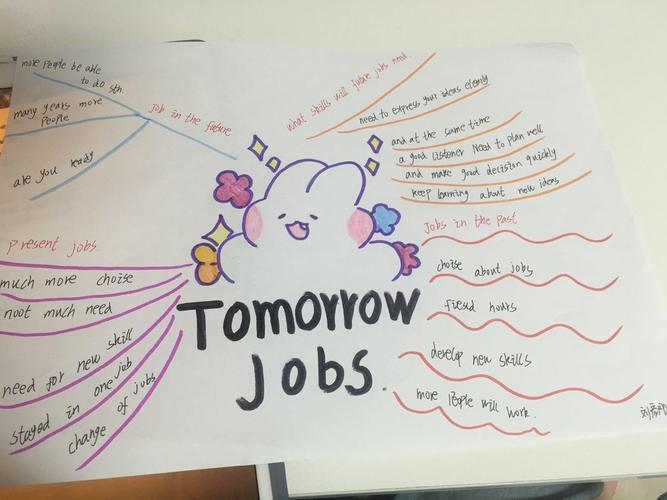 more people be able
to do sth.
many years more
people
are you ready
Job in the future
what skills will future jobs need.
need to express your ideas clearly
and at the same time
a good listener Need to plan well
and make good decision quickly
keep learning about new ideas
Present jobs
much more choise
noot much need
need for new skill
stayed in one job
change of jobs
Tomorrow
Jobs.
Jobs in the past
choise about jobs
fiesd hours
develop new skills
more people will work.